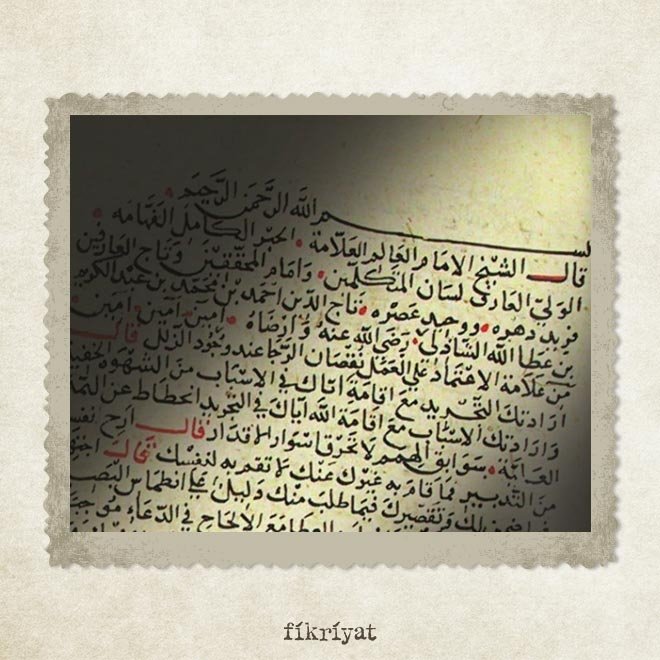 بسم الله الرحمن الرحيم
قال الشيخ الامام العالم العلامة الحبر الكامل الفهامه
الولي العارف لسان المتكلمين وامام المحققين وتاج العارفين
فريد دهره ووحيد عصره تاج الدين احمد بن محمد بن عبد الكريم
بن عطا الله الشاذلي رضي الله عنه وارضاه امين امين امين
من علامة الاعتماد علي العمل نقصان الرجا عند وجود الزلل قال
ارادتك التجريد مع اقامة اياك في الاسباب من الشهوة الخفية
وارادتك الاسباب مع اقامة الله اياك في التجريد انحطاط عن
العالية سوابق الهمم لا تخرق اسوار الاقدار قال ارح نفسك
من التدبير فما قام به غيرك عنك لا تقم به لنفسك قال
ضمن لك وتقصيرك فيما طلب منك دليل علي انطماس
العطا مع الالحاح في الدعاء موجبا
fikriyat